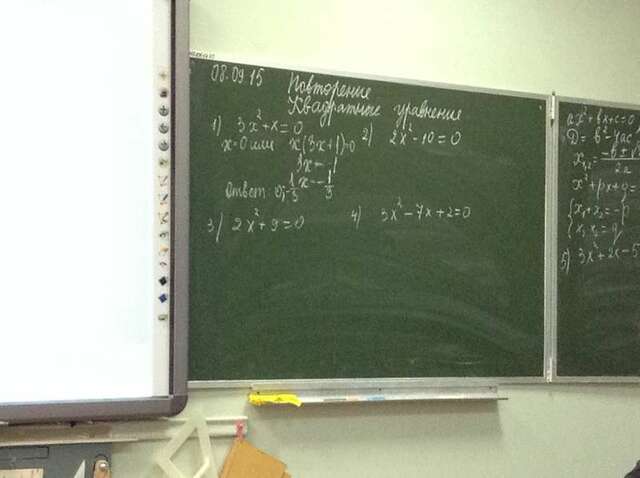 08.09.15
Повторение
Квадратные уравнения
1) 3x²+x=0
x=0 или x(3x+1)=0
3x=-1
x=-1/3
Ответ: 0;-1/3
2) 2x²-10=0
3) 2x²+9=0
4) 3x²-7x+2=0
ax²+bx+c=0
D=b²-4ac
x₁,₂=-b±√
2a
x²+px+q=
{x₁+x₂=-p
x₁x₂=q
5) 3x²+2x-5